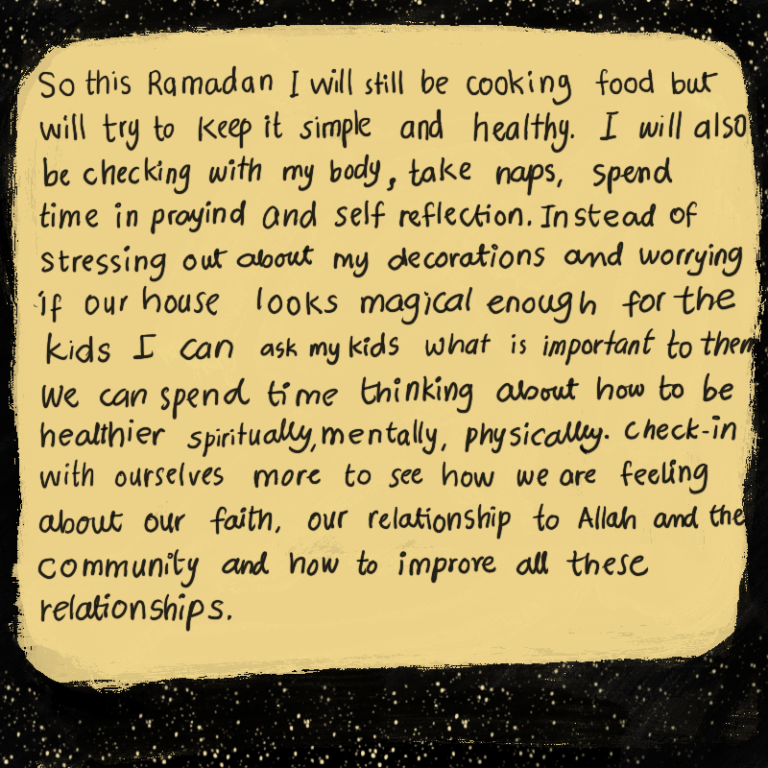 So this Ramadan I will still be cooking food but
will try to keep it simple and healthy. I will also
be checking with my body, take naps, spend
time in prayind and self reflection. Instead of
stressing out about my decorations and worrying
if our house looks magical enough for the
kids I can ask my kids what is important to them
We can spend time thinking about how to be
healthier spiritually, mentally, physically. Check-in
with ourselves more to see how we are feeling
about our faith, our relationship to Allah and the
community and how to improve all these
relationships.